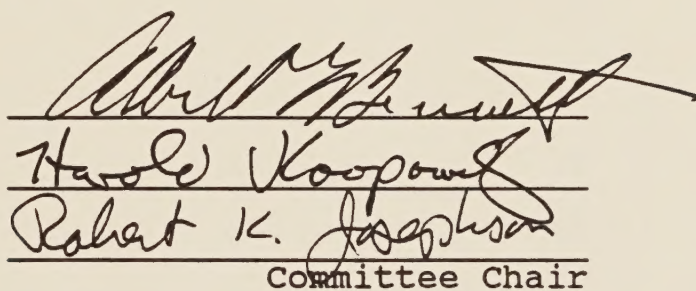 Albert Bennett
Harold Koopowitz
Robert K. Josephson
Committee Chair